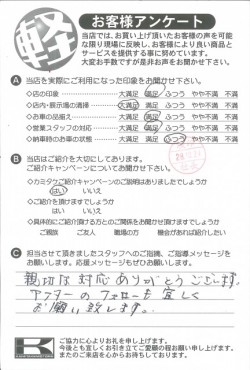 軽
お客様アンケート
当店では、お買い上げ頂いたお客様の声を可能
な限り現場に反映し、お客様により良い商品と
サービスを提供する事に努めています。
大変お手数ですが是非お声をお聞かせ下さい。
A 当店を実際にご利用になった印象をお聞かせ下さい。
◇店の印象 大満足 満足 ふつう やや不満 不満
◇店内・展示場の清掃 大満足 満足 ふつう やや不満 不満
◇お車の品揃え 大満足 満足 ふつう やや不満 不満
◇営業スタッフの対応 大満足 満足 ふつう やや不満 不満
◇納車時のお車の状態 大満足 満足 ふつう やや不満 不満
B 当店ご紹介を大切にしております。
ご紹介キャンペーンについてお聞かせ下さい。
◇カミタウご紹介キャンペーンのご説明はありましたでしょうか
はい いいえ
◇ご紹介を頂けますでしょうか
はい いいえ
◇具体的にご紹介頂ける方とのご関係をお聞かせ頂けますでしょうか
ご親族 ご友人 職場の方 機会があれば紹介したい
C 担当させて頂きましたスタッフへのご指摘、ご指導メッセージを
お願いします。応援メッセージもぜひお願いします。
親切な対応ありがとうございます。
アフターのフォローも宜しく
お願い致します。
K
ご協力に心よりお礼を申し上げます。
今後とも宜しくお引き立てご愛顧の程お願い申し上げます。
またのご来店を心からお待ちしております。